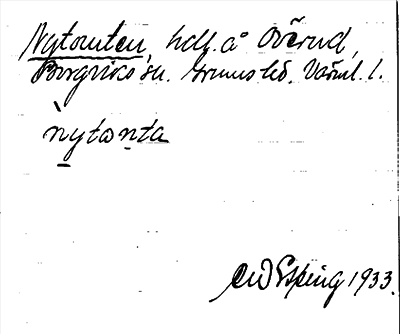 Nytomten, hdl. å Överud,
Borgviks sn. Grums hd. Värml. l.
nytomta
CW Esping 1933.